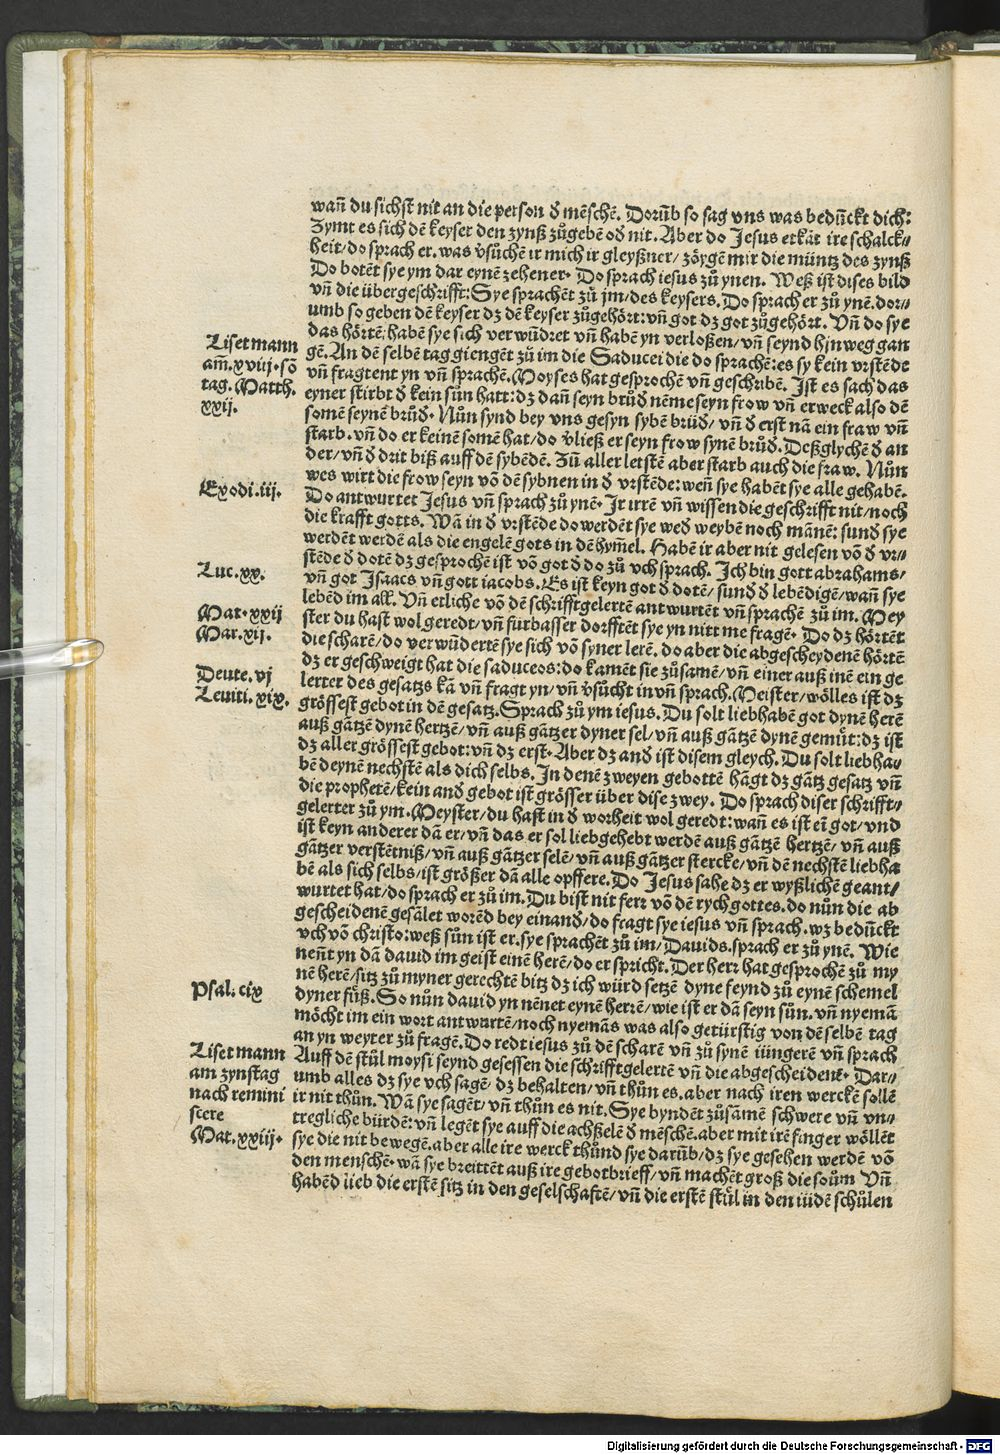 wañ du sichst nit an die person d̕ mēschē. Dorūb so sag vns was bedūckt dich:
Zymt es sich dē keyser den zynß zůgebē od̕ nit. Aber do Jesus erkāt ire schalck⸗
heit/do sprach er. was v̕sůchēt ir mich ir gleyßner/ zöygēt mir die müntz des zynß
Do botēt sye ym dar eynē zehener. Do sprach iesus zů ynen. Weß ist dises bild
vñ die übergeschrifft: Sye sprachēt zů jm/des keysers. Do sprach er zů ynē. dor⸗
umb so geben dē keyser dz dē keyser zůgehört: vñ got dz got zůgehört. Vñ do sye
das hörtē: habē sye sich verwūdret vñ habē yn verloßen/ vñ seynd hinweg gan
gē. An dē selbē tag giengēt zů im die Saducei die do sprachē: es sy kein vrstēde
vñ fragtent yn vñ sprachē. Moyses hat gesprochē vñ geschribē. Ist es sach das
eyner stirbt d̕ kein sůn hatt: dz dañ seyn brůd̕ nēme seyn frow vñ erweck also dē
somē seynē brůd̕. Nůn synd bey vns gesyn sybē brüd̕/ vñ d̕ erst nā ein fraw vñ
starb. vñ do er keinē somē hat/do v̕ließ er seyn frow synē brůd̕. Deßglychē d̕ an
der/vñ d̕ drit biß auff dē sybēdē. Zů aller letstē aber starb auch die fraw. Nůn
wes wirt die frow seyn vō dē sybnen in d̕ vrstēde: weñ sye habēt sye alle gehabē.
Do antwurtet Jesus vñ sprach zů ynē. Ir irrē vñ wissen die geschrifft nit/noch
die krafft gotts. Wā in d̕ vrstēde do werdēt sye wed̕ weybē noch mānē: sund̕ sye
werdēt werdē als die engelē gots in dē hym̄el. Habē ir aber nit gelesen vō d̕ vr⸗
stēde d̕ dotē dz gesprochē ist vō got d̕ do zů vch sprach. Ich bin gott abrahams/
vñ got Isaacs vñ gott iacobs. Es ist keyn got d̕ dotē/ sund̕ d̕ lebēdigē/wañ sye
lebēd im all. Vñ etliche vō dē schrifftgelertē antwurtēt vñ sprachē zů im. Mey
ster du hast wol geredt/vñ fürbasser dorfftēt sye yn nitt me fragē. Do dz hörtēt
die scharē/do verwūdertē sye sich vō syner lerē. do aber die abgescheydenē hörtē
dz er geschweigt hat die saduceos: do kamēt sie zůsamē/vñ einer auß inē ein ge
lerter des gesatzs kā vñ fragt yn/vñ v̕sůcht in vñ sprach. Meister/wölles ist dz
grössest gebot in dē gesatz. Sprach zů ym iesus. Du solt liebhabē got dynē herē
auß gātzē dynē hertzē/vñ auß gātzer dyner sel/vñ auß gātzē dynē gemüt: dz ist
dz aller grössest gebot: vñ dz erst. Aber dz and̕ ist disem gleych. Du solt liebha⸗
bē deynē nechstē als dich selbs. In denē zweyen gebottē hāgt dz gātz gesatz vñ
die prophetē/kein and̕ gebot ist grösser über dise zwey. Do sprach diser schrifft⸗
gelerter zů ym. Meyster/du hast in d̕ worheit wol geredt: wañ es ist eī got/vnd
ist keyn anderer dā er/vñ das er sol liebgehebt werdē auß gātzē hertzē/ vñ auß
gātzer verstētniß/vñ auß gātzer selē/vñ auß gātzer stercke/vñ dē nechstē liebha
bē als sich selbs/ist größer dā alle opffere. Do Jesus sahe dz er wyßlichē geant⸗
wurtet hat/do sprach er zů im. Du bist nit ferr vō dē rych gottes. do nůn die ab
gescheidenē gesālet worēd bey einand̕/do fragt sye iesus vñ sprach. wz bedūckt
vch vō christo: weß sůn ist er. sye sprachēt zů im/Dauids. sprach er zů ynē. Wie
neñt yn dā dauid im geist einē herē/do er spricht. Der herr hat gesprochē zů my
nē herē/sitz zů myner gerechtē bitz dz ich würd setzē dyne feynd zů eynē schemel
dyner füß. So nůn dauid yn nēnet eynē herrē/wie ist er dā seyn sůn. vñ nyemā
möcht im ein wort antwurtē/noch nyemās was also getürstig von dē selbē tag
an yn weyter zů fragē. Do redt iesus zů dē scharē vñ zů synē iüngerē vñ sprach
Auff dē stůl moysi seynd gesessen die schrifftgelertē vñ die abgescheidenē. Dar⸗
umb alles dz sye vch sagē dz behalten/vñ thůn es. aber nach iren werckē sollē
ir nit thůn. Wā sye sagēt/vñ thůn es nit. Sye byndēt zůsāmē schwere vñ vn⸗
tregliche bürdē: vñ legēt sye auff die achßelē d̕ mēschē. aber mit irē finger wöllēt
sye die nit bewegē. aber alle ire werck thůnd sye darūb/dz sye gesehen werdē vō
den menschē. wā sye breittēt auß ire gebotbrieff/vñ machēt groß die soům Vñ
habēd lieb die erstē sitz in den geselschaftē/vñ die erstē stůl in den iüdē schůlen
Liset mann
am̄. xviij. sō
tag. Matth.
xxij.
Exodi. iij.
Luc. xx.
Mat. xxij
Mar. xij.
Deute. vj
Leuiti. xix.
Psal. cix
Liset mann
am zynstag
nach remini
scere
Mat. xxiij.
Digitalisierung gefördert durch die Deutsche Forschungsgemeinschaft - DFG